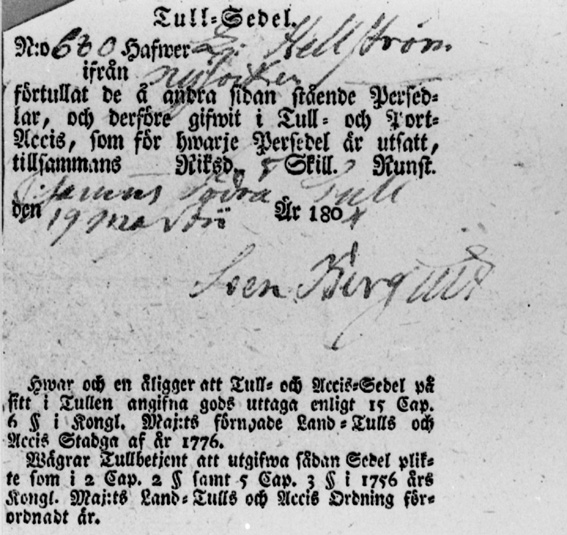 Tull-Sedel.
N:o 630 Hafwer L: Hellström
ifrån
förtullat de å andra sidan stående Persed-
lar, och derföre gifwit i Tull- och Port-
Accis, som för hwarje Persedel är utsatt,
tillsammans Riksd. 8 Skill. Runst.
Södra Tull
den 19 Martii År 1804
Sven Berg
Hwar och en åligger att Tull- och Accis-Sedel på
sitt i Tullen angifna gods uttaga enligt 15 Cap.
6 § i Kongl. Maj:ts förnyade Land-Tulls och
Accis Stadga af år 1776.
Wägrar Tullbetjent att utgifwa sådan Sedel plik-
te som i 2 Cap. 2 § samt 5 Cap. 3 § i 1756 års
Kongl. Maj:ts Land-Tulls och Accis Ordning för-
ordnadt är.